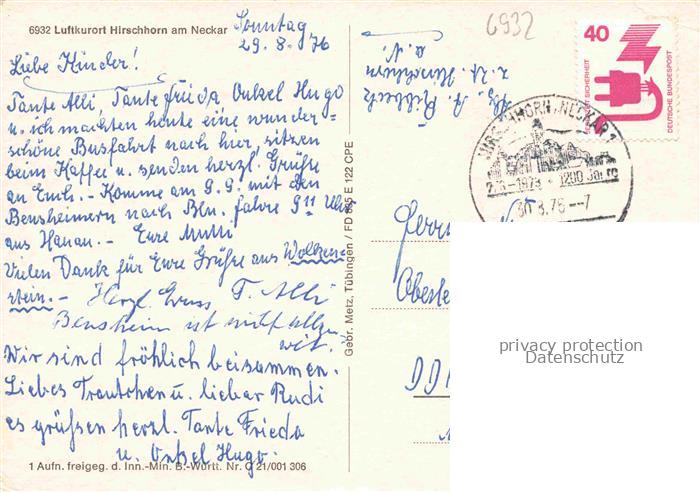 6932
6932 Luftkurort Hirschhorn am Neckar
Sonntag
29.8.76
Liebe Kinder!
Tante Alli, Tante Frieda Onkel Hugo
u. ich machten heute eine wunder-
schöne Busfahrt nach hier, sitzen
beim Kaffee u. senden herzl. Grüße
an Euch. - Komme am 9.9. mit den
Bensheimern nach Bln. fahre 9 11 Uhr
aus Hanau. - Eure Mutti
Vielen Dank für Eure Grüße aus Wolken-
stein. - Herzl. Gruss T. Alli
Bensheim ist nicht allzu
weit.
Wir sind fröhlich beisammen.
Liebes Trautchen u. lieber Rudi
es grüßen herzl. Tante Frieda
u. Onkel Hugo.
1 Aufn. freigeg. d. Inn.-Min. B.-Württ. Nr. C 21/001 306
Gebr. Metz, Tübingen / FD 865 E 122 CPE
z. Zt. Hirschhorn
a. N.
40
DEUTSCHE BUNDESPOST
HIRSCHHORN, NECKAR 1
1973 · 1200 Jahre
30.8.76--7
DD
privacy protection
Datenschutz